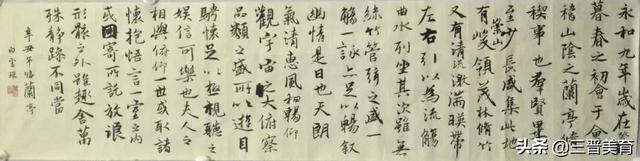 永和九年歲在癸
暮春之初會于會
稽山陰之蘭亭脩
禊事也羣賢畢
至少長咸集此地
有崇山峻領茂林脩竹
又有清流激湍暎帶
左右引以為流觴
曲水列坐其次雖無
絲竹管弦之盛一
觴一詠亦足以暢叙
幽情是日也天朗
氣清惠風和暢仰
觀宇宙之大俯察
品類之盛所以遊目
騁懷足以極視聽之
娛信可樂也夫人之
相與俯仰一世或取諸
懷抱悟言一室之內
或因寄所託放浪
形骸之外雖趣舍萬
殊靜躁不同當
辛丑年臨蘭亭
白雲
头条@三晋美育